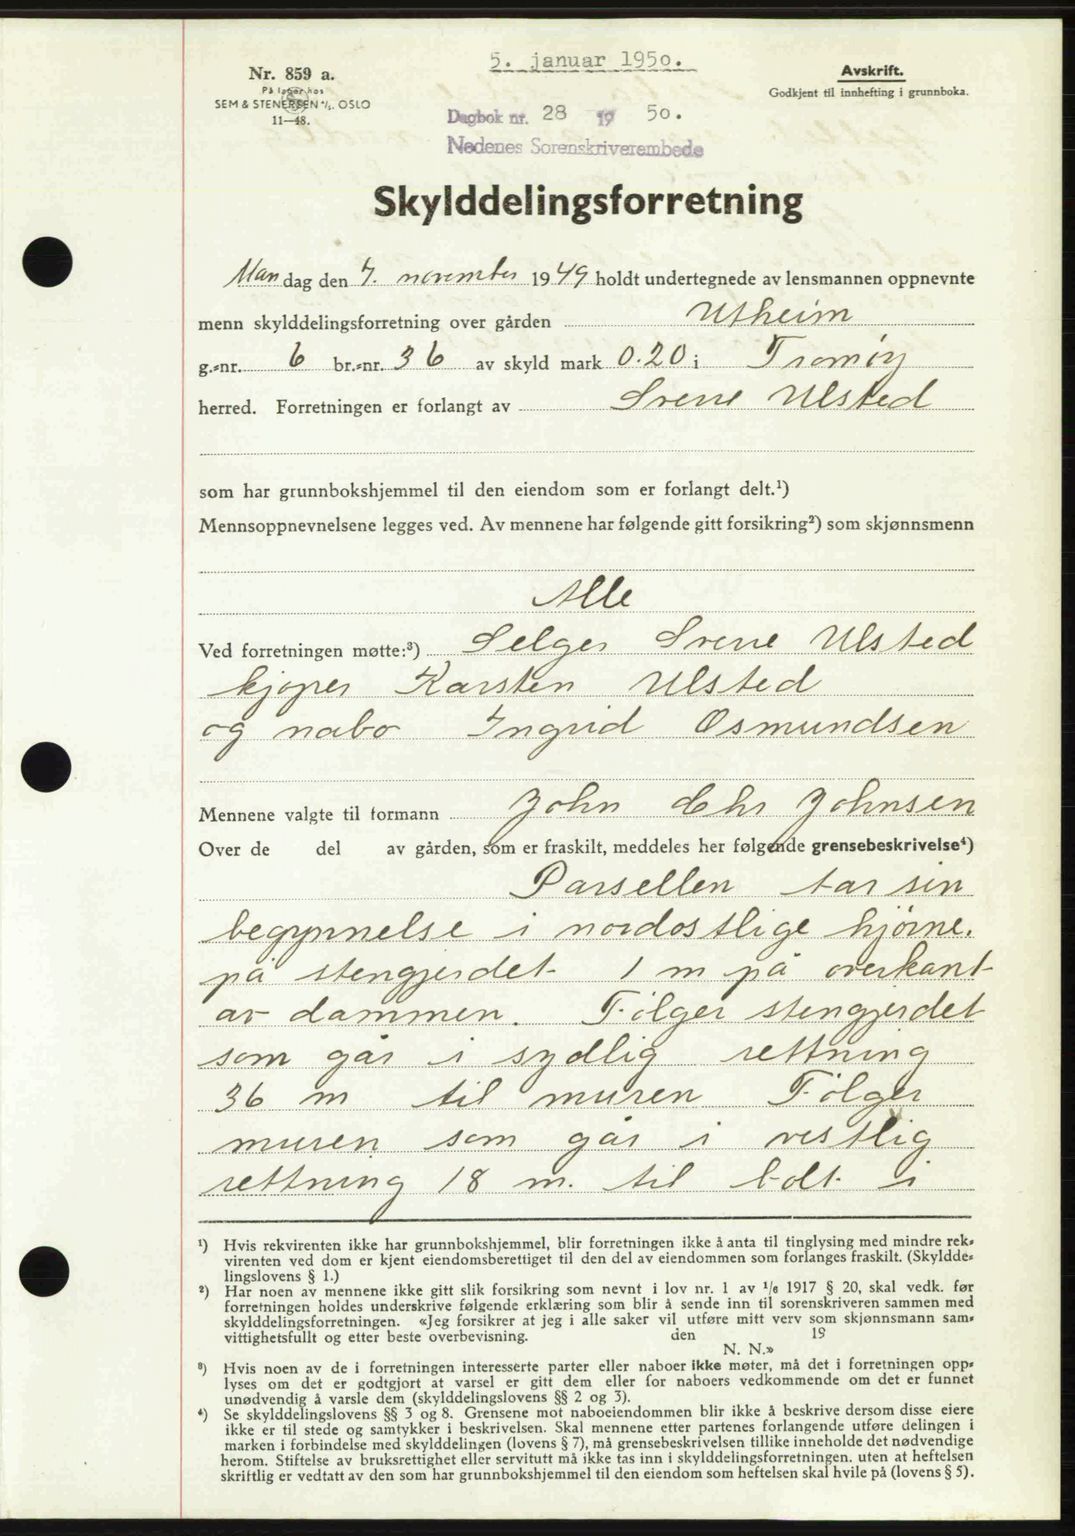 5. januar 1950.
Nr. 859 a.
På lager hos
SEM & STENERSEN A/S. OSLO
11—48.
Avskrift.
Godkjent til innhefting i grunnboka.
Dagbok nr. 28 19 50.
Nedenes Sorenskriverembede
Skylddelingsforretning
Mandag den 7. november 1949 holdt undertegnede av lensmannen oppnevnte
menn skylddelingsforretning over gården Utheim
g.-nr. 6 br.-nr. 36 av skyld mark 0.20 i Tromøy
herred. Forretningen er forlangt av Srene Ulsted
som har grunnbokshjemmel til den eiendom som er forlangt delt.¹)
Mennsoppnevnelsene legges ved. Av mennene har følgende gitt forsikring²) som skjønnsmenn
Alle
Ved forretningen møtte:³) Selger Srene Ulsted
kjøper Karsten Ulsted
og nabo Ingrid Osmundsen
Mennene valgte til formann John Chr Johnsen
Over de del av gården, som er fraskilt, meddeles her følgende grensebeskrivelse⁴)
Parsellen tar sin
begynnelse i nordøstlige hjörne.
på stengjerdet 1 m på overkant
av dammen. Fölger stengjerdet
som går i sydlig rettning
36 m til muren Fölger
muren som går i vestlig
rettning 18 m. til bolt i
¹) Hvis rekvirenten ikke har grunnbokshjemmel, blir forretningen ikke å anta til tinglysing med mindre rek-
virenten ved dom er kjent eiendomsberettiget til den del av eiendommen som forlanges fraskilt. (Skyldde-
lingslovens § 1.)
²) Har noen av mennene ikke gitt slik forsikring som nevnt i lov nr. 1 av 1/6 1917 § 20, skal vedk. før
forretningen holdes underskrive følgende erklæring som blir å sende inn til sorenskriveren sammen med
skylddelingsforretningen. «Jeg forsikrer at jeg i alle saker vil utføre mitt verv som skjønnsmann sam-
vittighetsfullt og etter beste overbevisning. den 19
N. N.»
³) Hvis noen av de i forretningen interesserte parter eller naboer ikke møter, må det i forretningen opp-
lyses om det er godtgjort at varsel er gitt dem eller for naboers vedkommende om det er funnet
unødvendig å varsle dem (skylddelingslovens §§ 2 og 3).
⁴) Se skylddelingslovens §§ 3 og 8. Grensene mot naboeiendommen blir ikke å beskrive dersom disse eiere
ikke er til stede og samtykker i beskrivelsen. Skal mennene etter partenes forlangende utføre delingen i
marken i forbindelse med skylddelingen (lovens § 7), må grensebeskrivelsen tillike inneholde det nødvendige
herom. Stiftelse av bruksrettighet eller servitutt må ikke tas inn i skylddelingsforretningen. uten at heftelsen
skriftlig er vedtatt av den som har grunnbokshjemmel til den eiendom som heftelsen skal hvile på (lovens § 5).